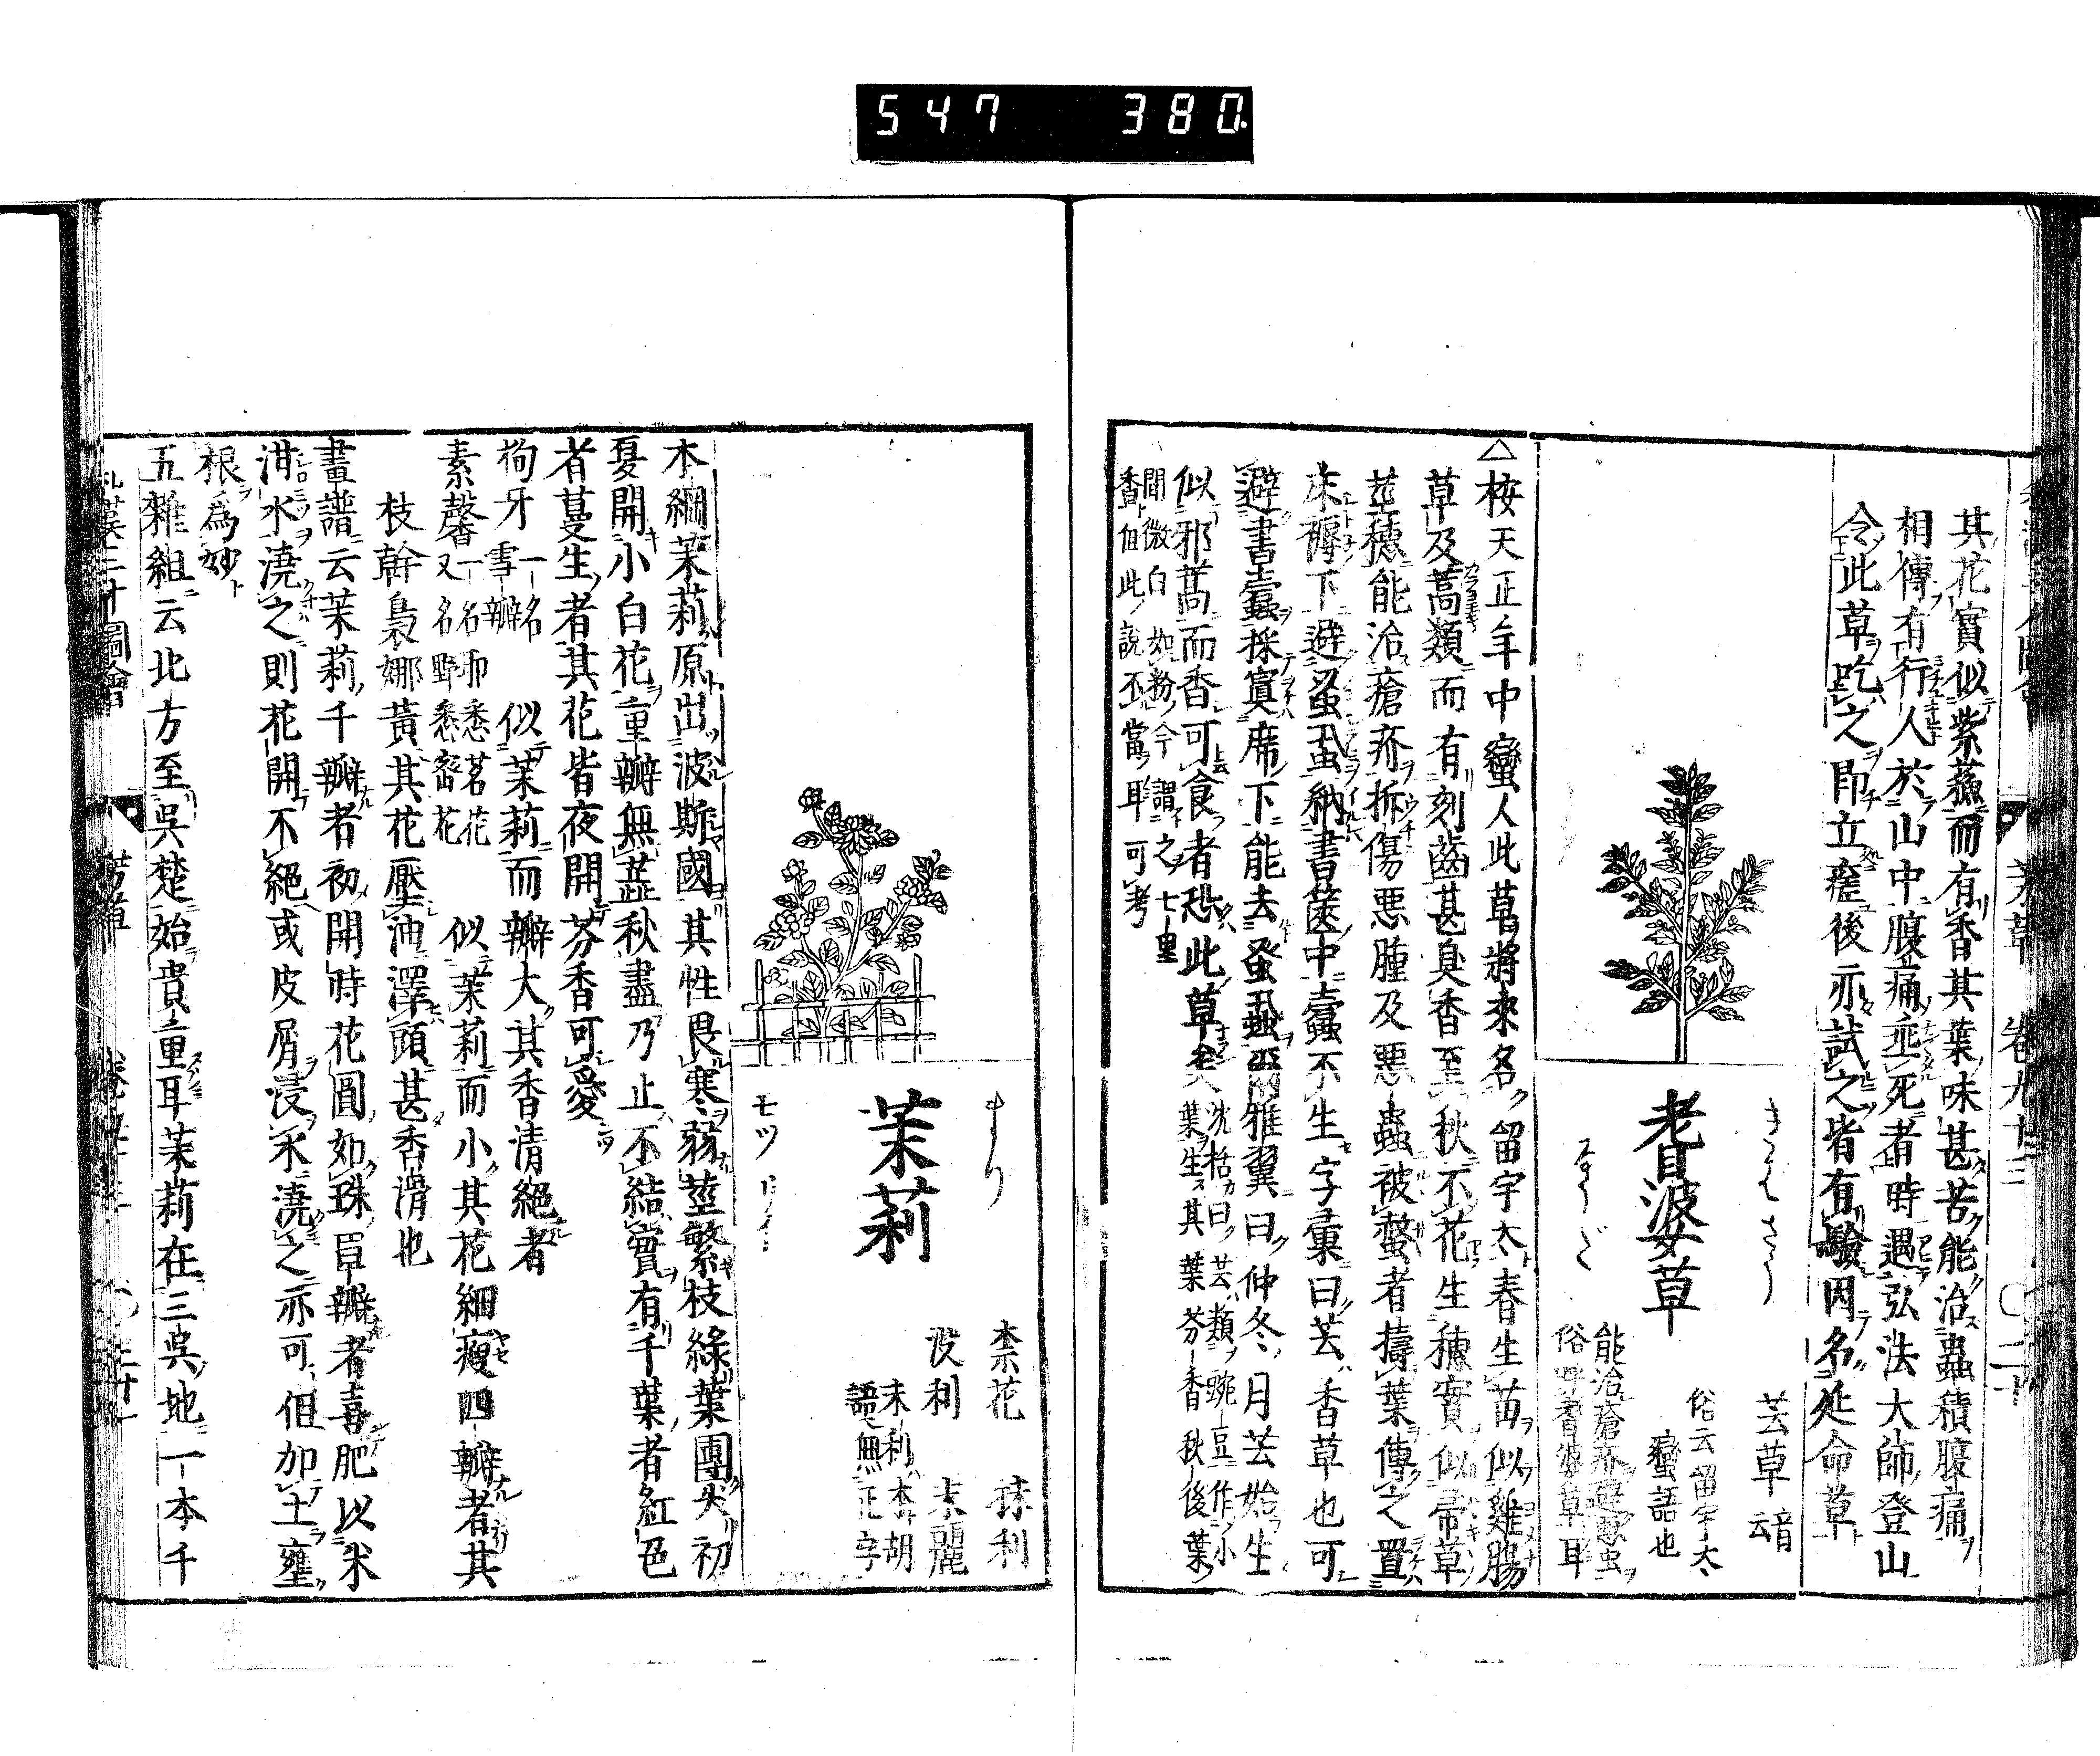 547 380
其花實似紫蘓而有香其葉味甚苦能治蟲積腹痛
相傳有行人於山中腹痛垂死者時遇弘法大師登山
令此草吃之即立瘥後亦試之皆有驗因名延命草
芸草 音云
俗云留宇太
蠻語也
能治瘡疥
俗呼耆婆草耳
耆婆草
△桉天正年中蠻人此草將來名留宇太春生苗似雞腸
草及蒿類而有刻齒甚臭香至秋不花生穗實似帚草
莖穗能治瘡疥折傷悪腫及悪蟲被螫者擣葉傅之置
床褥下避蚤虱納書篋中蠧不生字彙曰芸香草也可
避書蠧採寘席下能去蚤虱爾雅翼曰仲冬月芸始生
似邪蒿而香可食者恐此草矣
沈括曰芸類豌豆作小
葉生其葉芬香秋後葉
間微白如粉今謂之七里
香但此說不當耳可考
茉莉
モツ リイ
柰花 抹利
没利 末麗
末利本胡
語無正字
本綱茉莉原出波斯國其性畏寒弱莖繁枝綠葉團尖初
夏開小白花重瓣無蕋秋盡乃止不結實有千葉者紅色
者蔓生者其花皆夜開芬香可愛
狗牙 一名雪瓣 似茉莉而瓣大其香清絕者
素馨 一名耶悉茗花 又名野悉密花 似茉莉而小其花細瘦四瓣者其
枝幹裊娜黃其花壓油澤頭甚香滑也
畫譜云茉莉千瓣者初開時花圓如珠單瓣者喜肥以米
泔水澆之則花開不絕或皮屑浸水澆之亦可但加土壅
根為妙
五雜組云北方至吳楚始貴重耳茉莉在三吳地一本千
和漢三才圖會 芳草